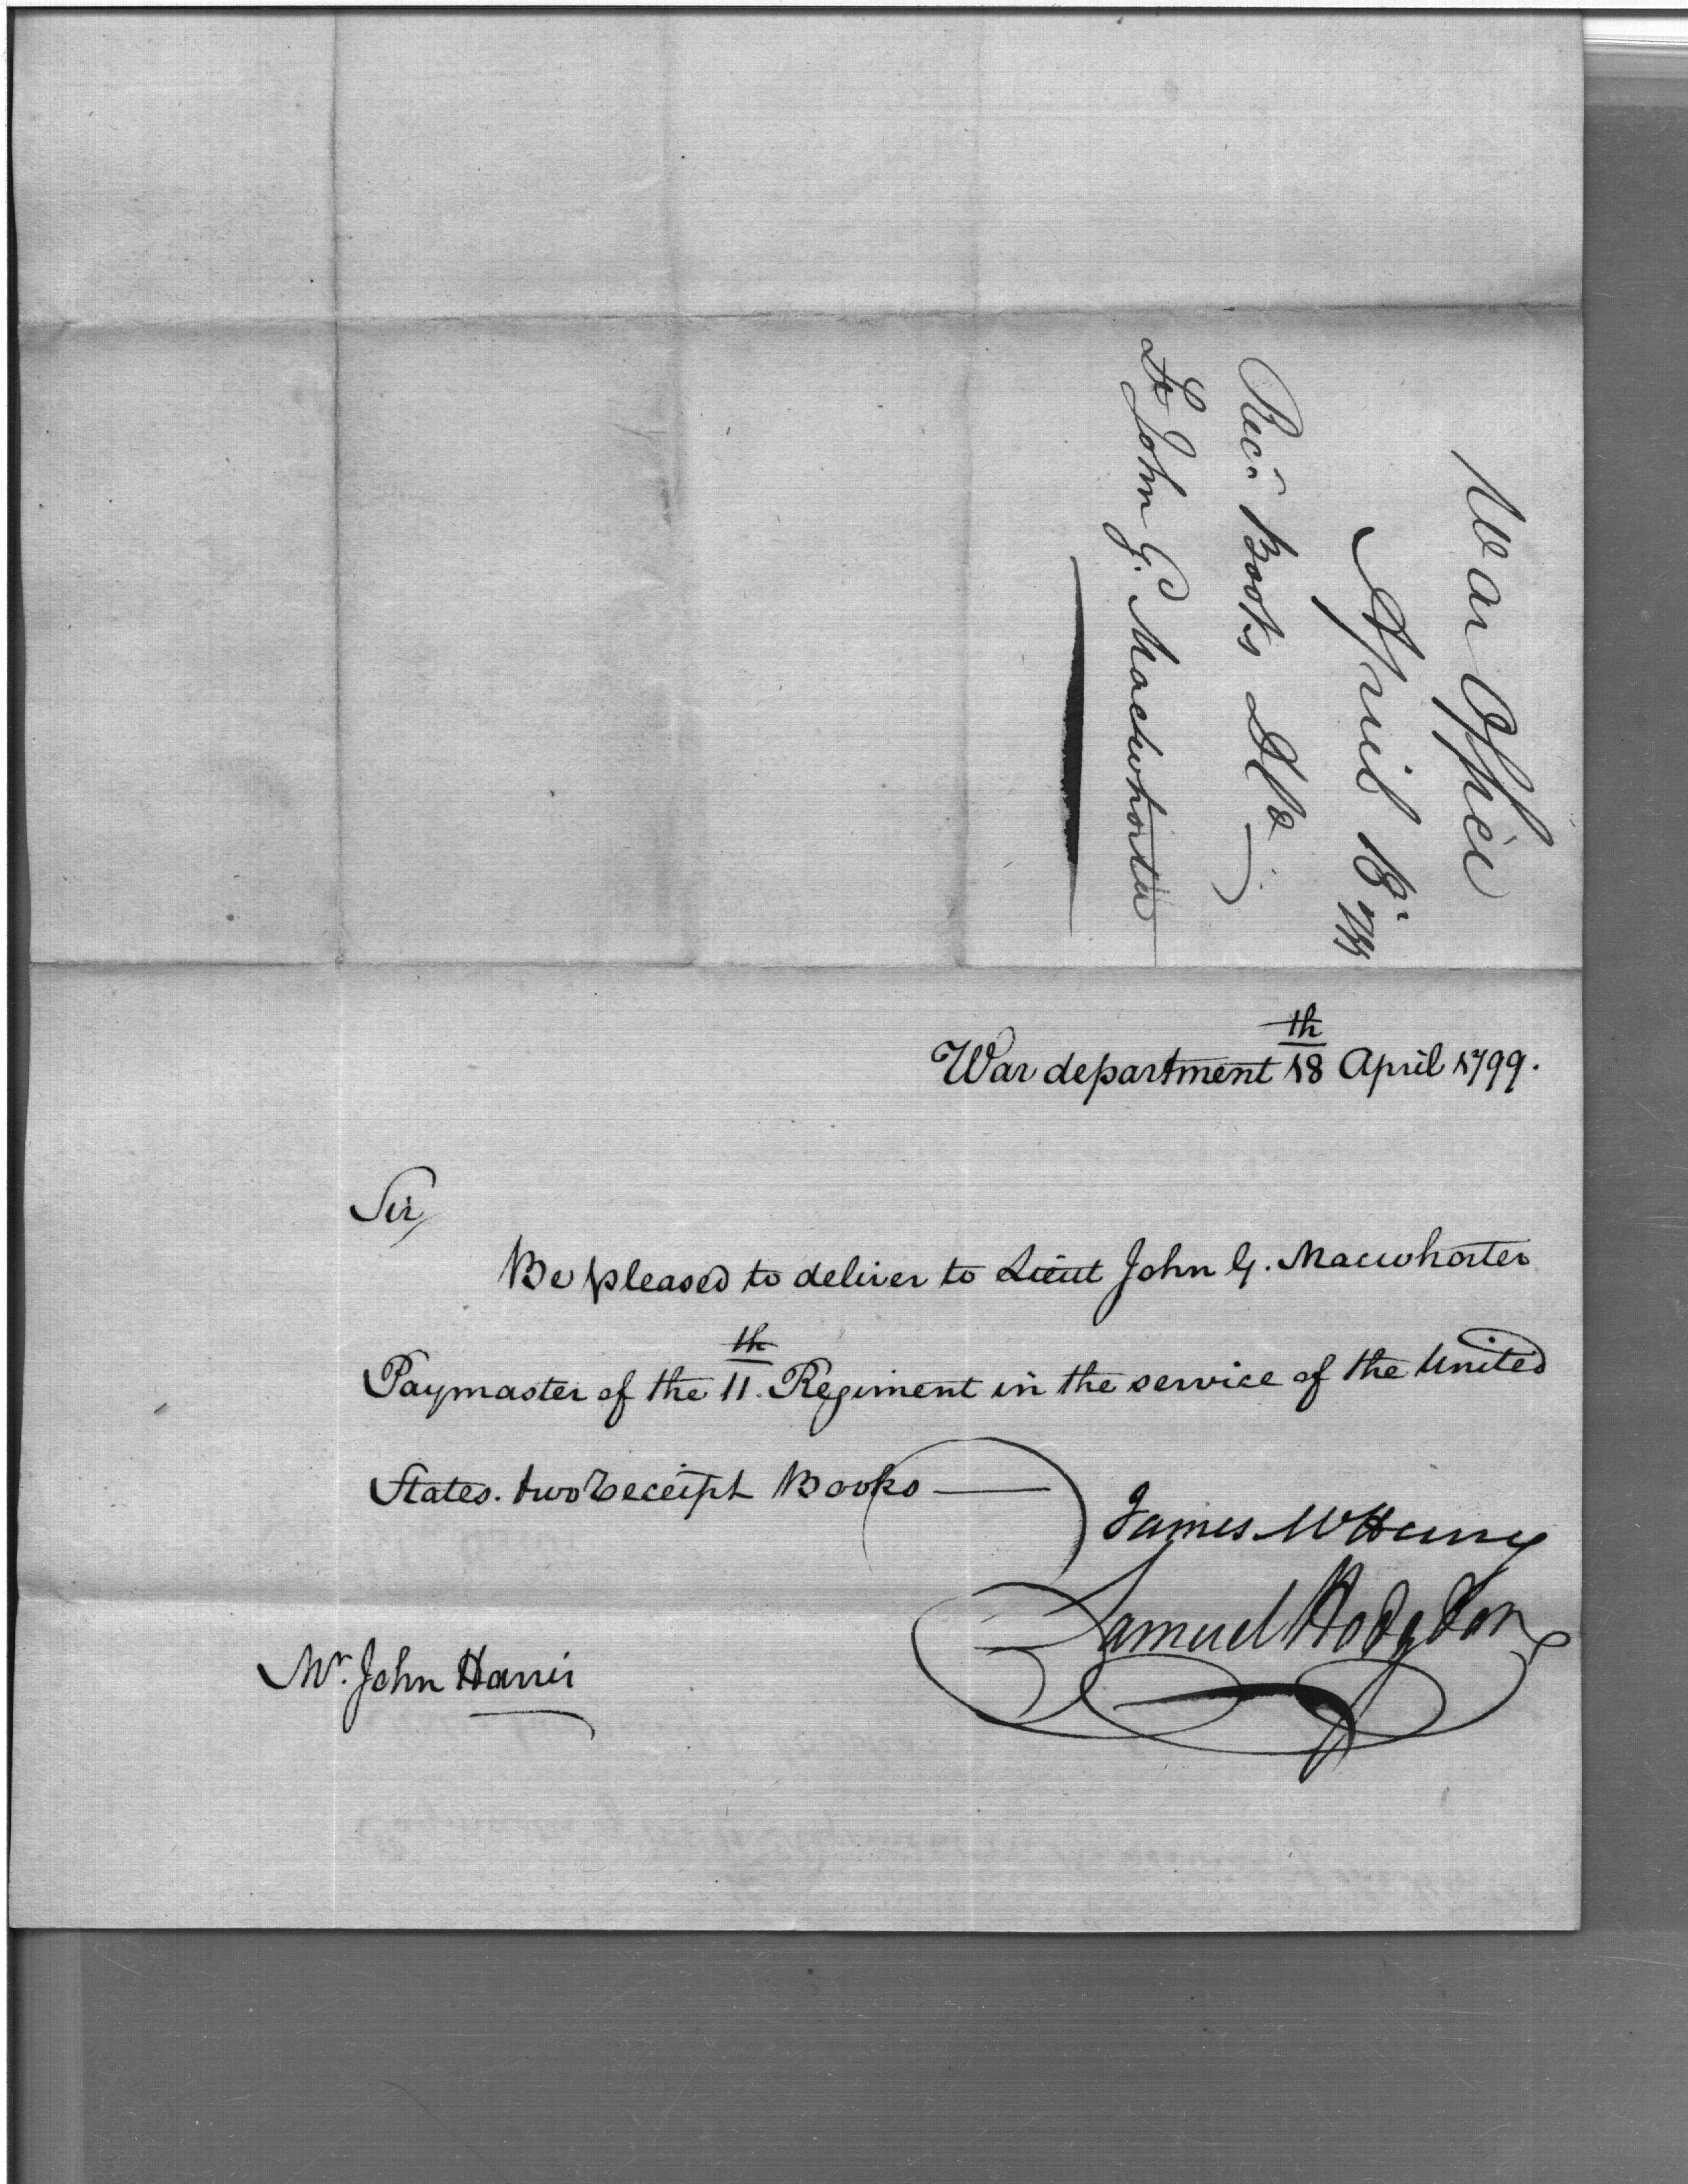 War Office
April 18. 99
Rec. Books
Lt John G. Macwhorter
War department 18th April 1799.
Sir,
Be pleased to deliver to Lieut John G. Macwhorter
Paymaster of the 11th Regiment in the service of the United
States. two receipt Books
James McHenry
Samuel Hodgdon
Mr. John Harris